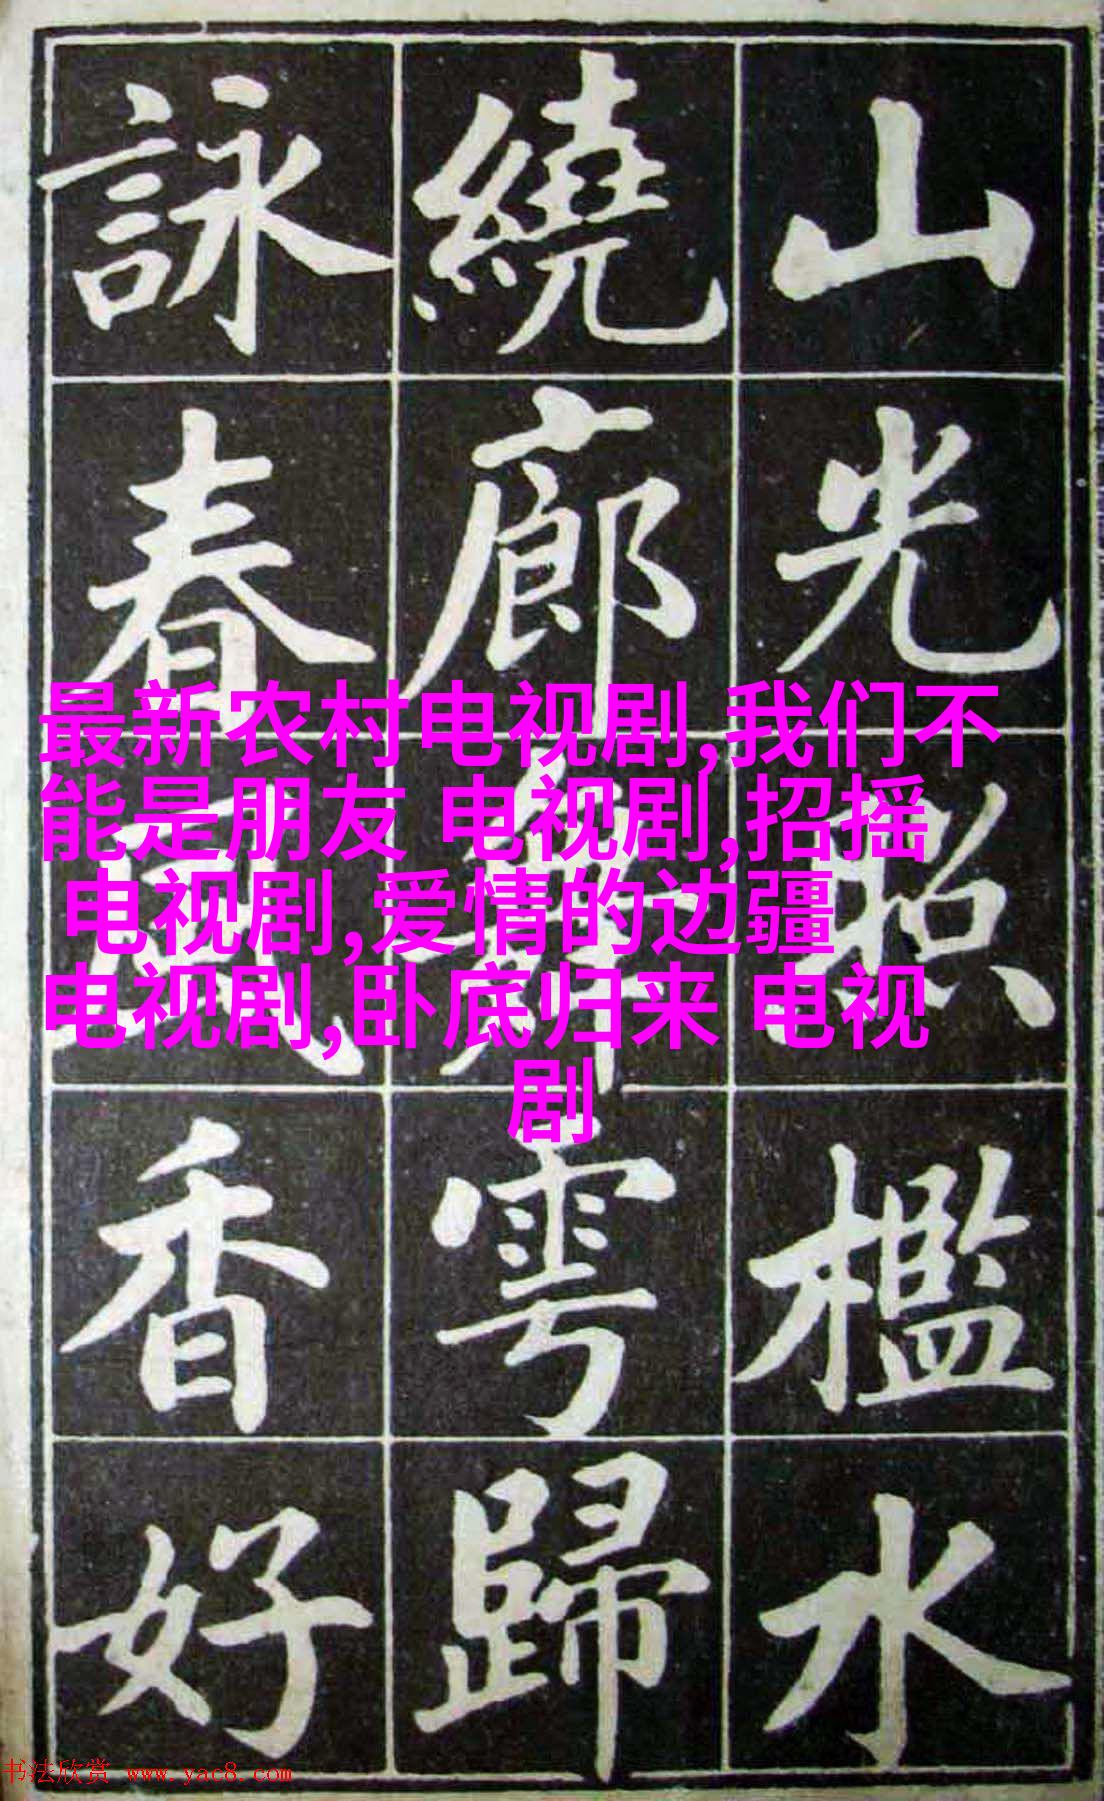 山光照檻水
繞廊舞雩歸
詠春風香好
最新农村电视剧,我们不
能是朋友 电视剧,招摇
电视剧,爱情的边疆
电视剧,卧底归来 电视
剧
书法欣赏 www.yac8.com